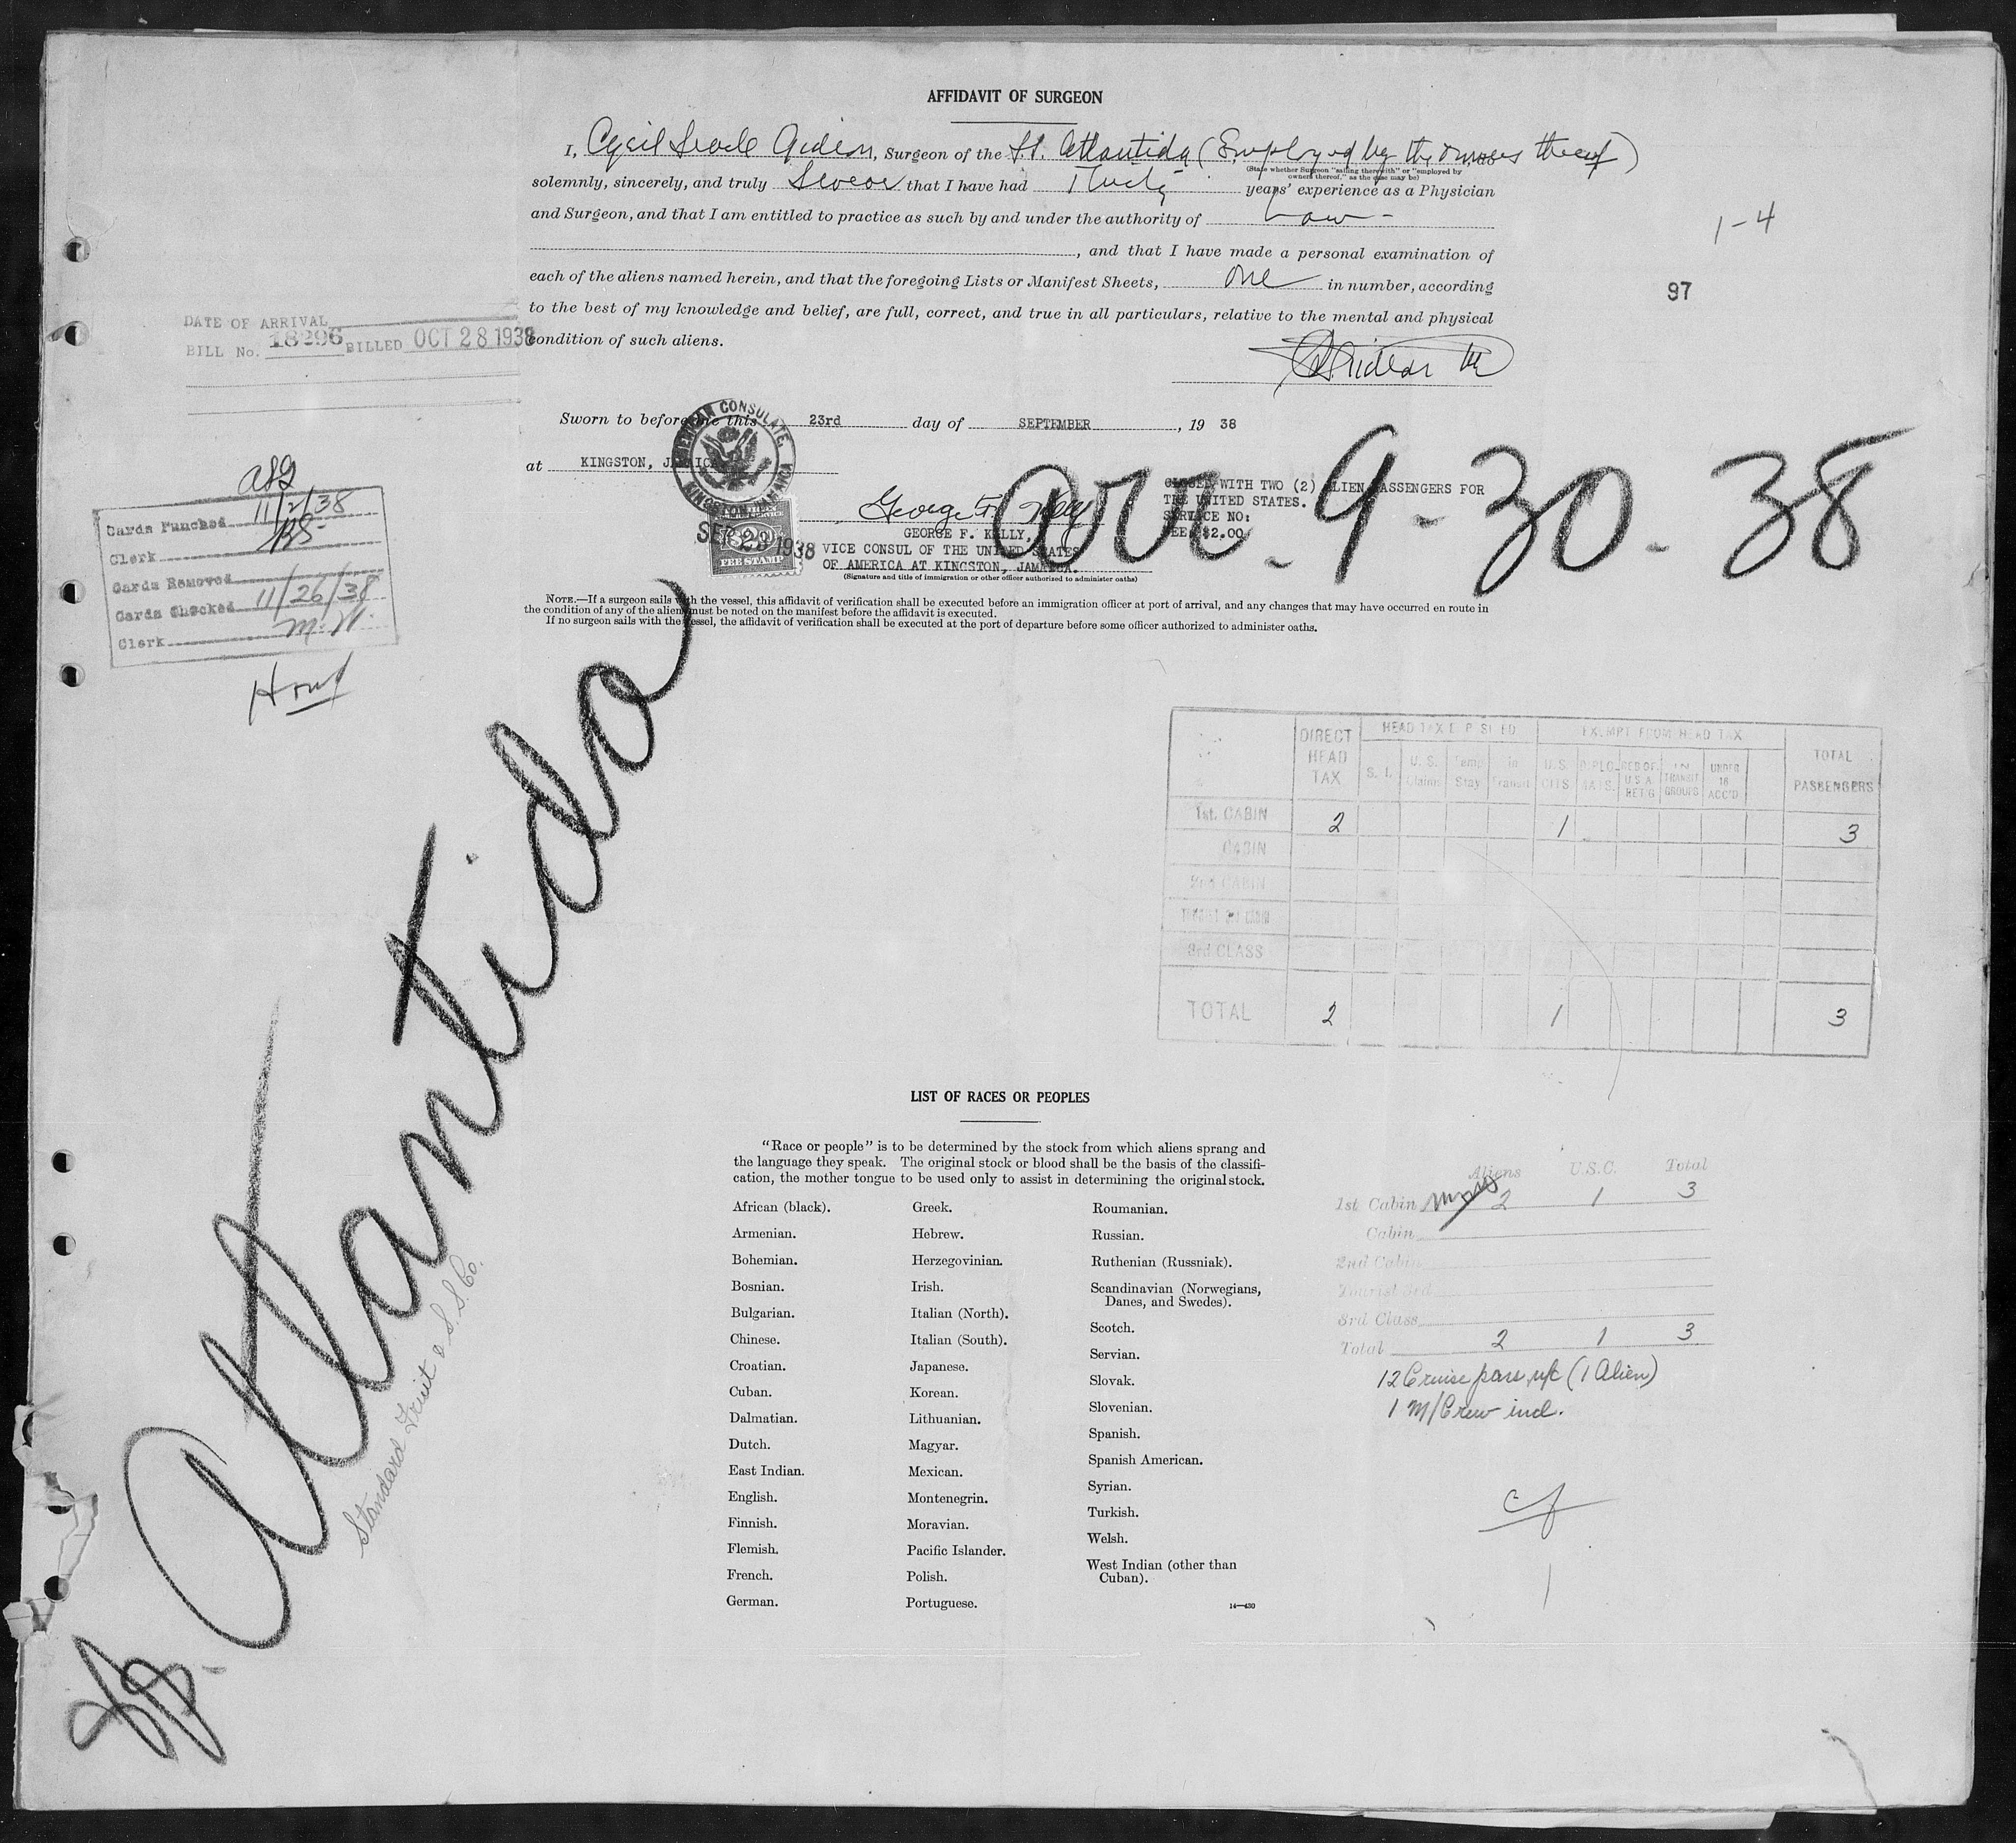 AFFIDAVIT OF SURGEON
I, Cyril Gideon, Surgeon of the SS. Atlantida (Employed by the owners thereof)
(State whether Surgeon "sailing therewith" or "employed by
owners thereof," as the case may be)
solemnly, sincerely, and truly swear that I have had Thirty years' experience as a Physician
and Surgeon, and that I am entitled to practice as such by and under the authority of Law -
, and that I have made a personal examination of
each of the aliens named herein, and that the foregoing Lists or Manifest Sheets, one in number, according
to the best of my knowledge and belief, are full, correct, and true in all particulars, relative to the mental and physical
condition of such aliens.
1-4
97
DATE OF ARRIVAL
BILL No. 18296 BILLED OCT 28 1938
Sworn to before me this 23rd day of SEPTEMBER, 19 38
at KINGSTON, JAMAICA
AMERICAN CONSULATE
KINGSTON, JAMAICA
SEP 23 1938
FEE STAMP
George F. Kelly
GEORGE F. KELLY,
VICE CONSUL OF THE UNITED STATES
OF AMERICA AT KINGSTON, JAMAICA.
(Signature and title of immigration or other officer authorized to administer oaths)
CLOSED WITH TWO (2) ALIEN PASSENGERS FOR
THE UNITED STATES.
SERVICE NO:
FEE $2.00
arr. 9-30-38
Cards Punched 11/2/38
Clerk
Cards Removed
Cards Checked 11/26/38
Clerk M.W.
NOTE.—If a surgeon sails with the vessel, this affidavit of verification shall be executed before an immigration officer at port of arrival, and any changes that may have occurred en route in
the condition of any of the aliens must be noted on the manifest before the affidavit is executed.
If no surgeon sails with the vessel, the affidavit of verification shall be executed at the port of departure before some officer authorized to administer oaths.
SS. Atlantida
Standard Fruit & S.S. Co.
DIRECT HEAD TAX
S. I.
U. S. Claim
Temp Stay
In Transit
EXEMPT FROM HEAD TAX
U.S. CITS
DIPLOMATS.
RES OF U.S.A RET'G
IN TRANSIT GROUPS
UNDER 16 ACC'D
TOTAL PASSENGERS
1st. CABIN 2 1 3
CABIN
2nd CABIN
TOURIST 3rd CABIN
3rd CLASS
TOTAL 2 1 3
LIST OF RACES OR PEOPLES
"Race or people" is to be determined by the stock from which aliens sprang and
the language they speak. The original stock or blood shall be the basis of the classifi-
cation, the mother tongue to be used only to assist in determining the original stock.
African (black).
Armenian.
Bohemian.
Bosnian.
Bulgarian.
Chinese.
Croatian.
Cuban.
Dalmatian.
Dutch.
East Indian.
English.
Finnish.
Flemish.
French.
German.
Greek.
Hebrew.
Herzegovinian.
Irish.
Italian (North).
Italian (South).
Japanese.
Korean.
Lithuanian.
Magyar.
Mexican.
Montenegrin.
Moravian.
Pacific Islander.
Polish.
Portuguese.
Roumanian.
Russian.
Ruthenian (Russniak).
Scandinavian (Norwegians,
Danes, and Swedes).
Scotch.
Servian.
Slovak.
Slovenian.
Spanish.
Spanish American.
Syrian.
Turkish.
Welsh.
West Indian (other than
Cuban).
14—430
Aliens U.S.C. Total
1st Cabin 2 1 3
Cabin
2nd Cabin
Tourist 3rd
3rd Class
Total 2 1 3
12 Cruise pass. (1 Alien)
1 M/Crew incl.